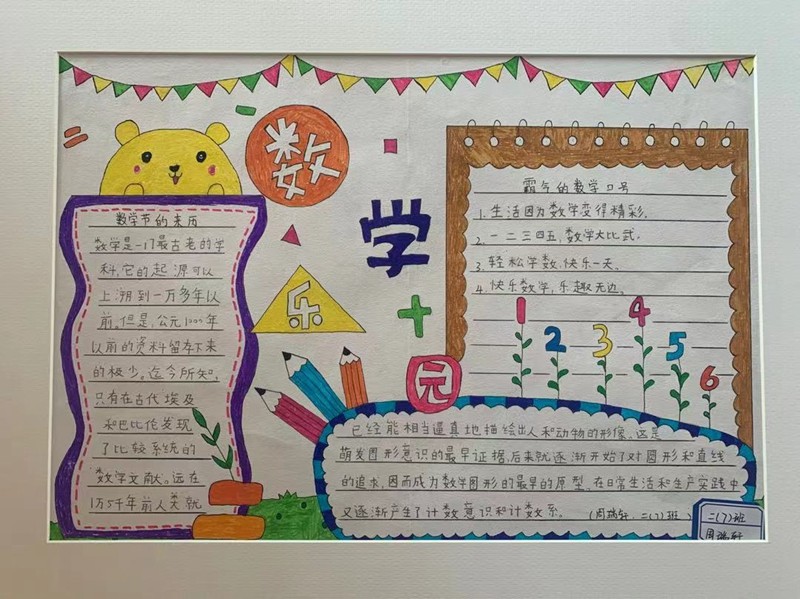 数
学
乐
园
数学节的来历
数学是一门最古老的学
科,它的起源可以
上溯到一万多年以
前。但是,公元1000年
以前的资料留存下来
的极少。迄今所知,
只有在古代埃及
和巴比伦发现
了比较系统的
数学文献。远在
1万5千年前人类就
霸气的数学口号
1.生活因为数学变得精彩。
2.一二三四五,数学大比武。
3.轻松学数,快乐一天。
4.快乐数学,乐趣无边。
1 2 3 4 5 6
已经能相当逼真地描绘出人和动物的形像。这是
萌发图形意识的最早证据,后来就逐渐开始了对圆形和直线
的追求,因而成为数学图形的最早的原型。在日常生活和生产实践中
又逐渐产生了计数意识和计数系。(周瑞轩,二(7)班)
二(7)班
周瑞轩